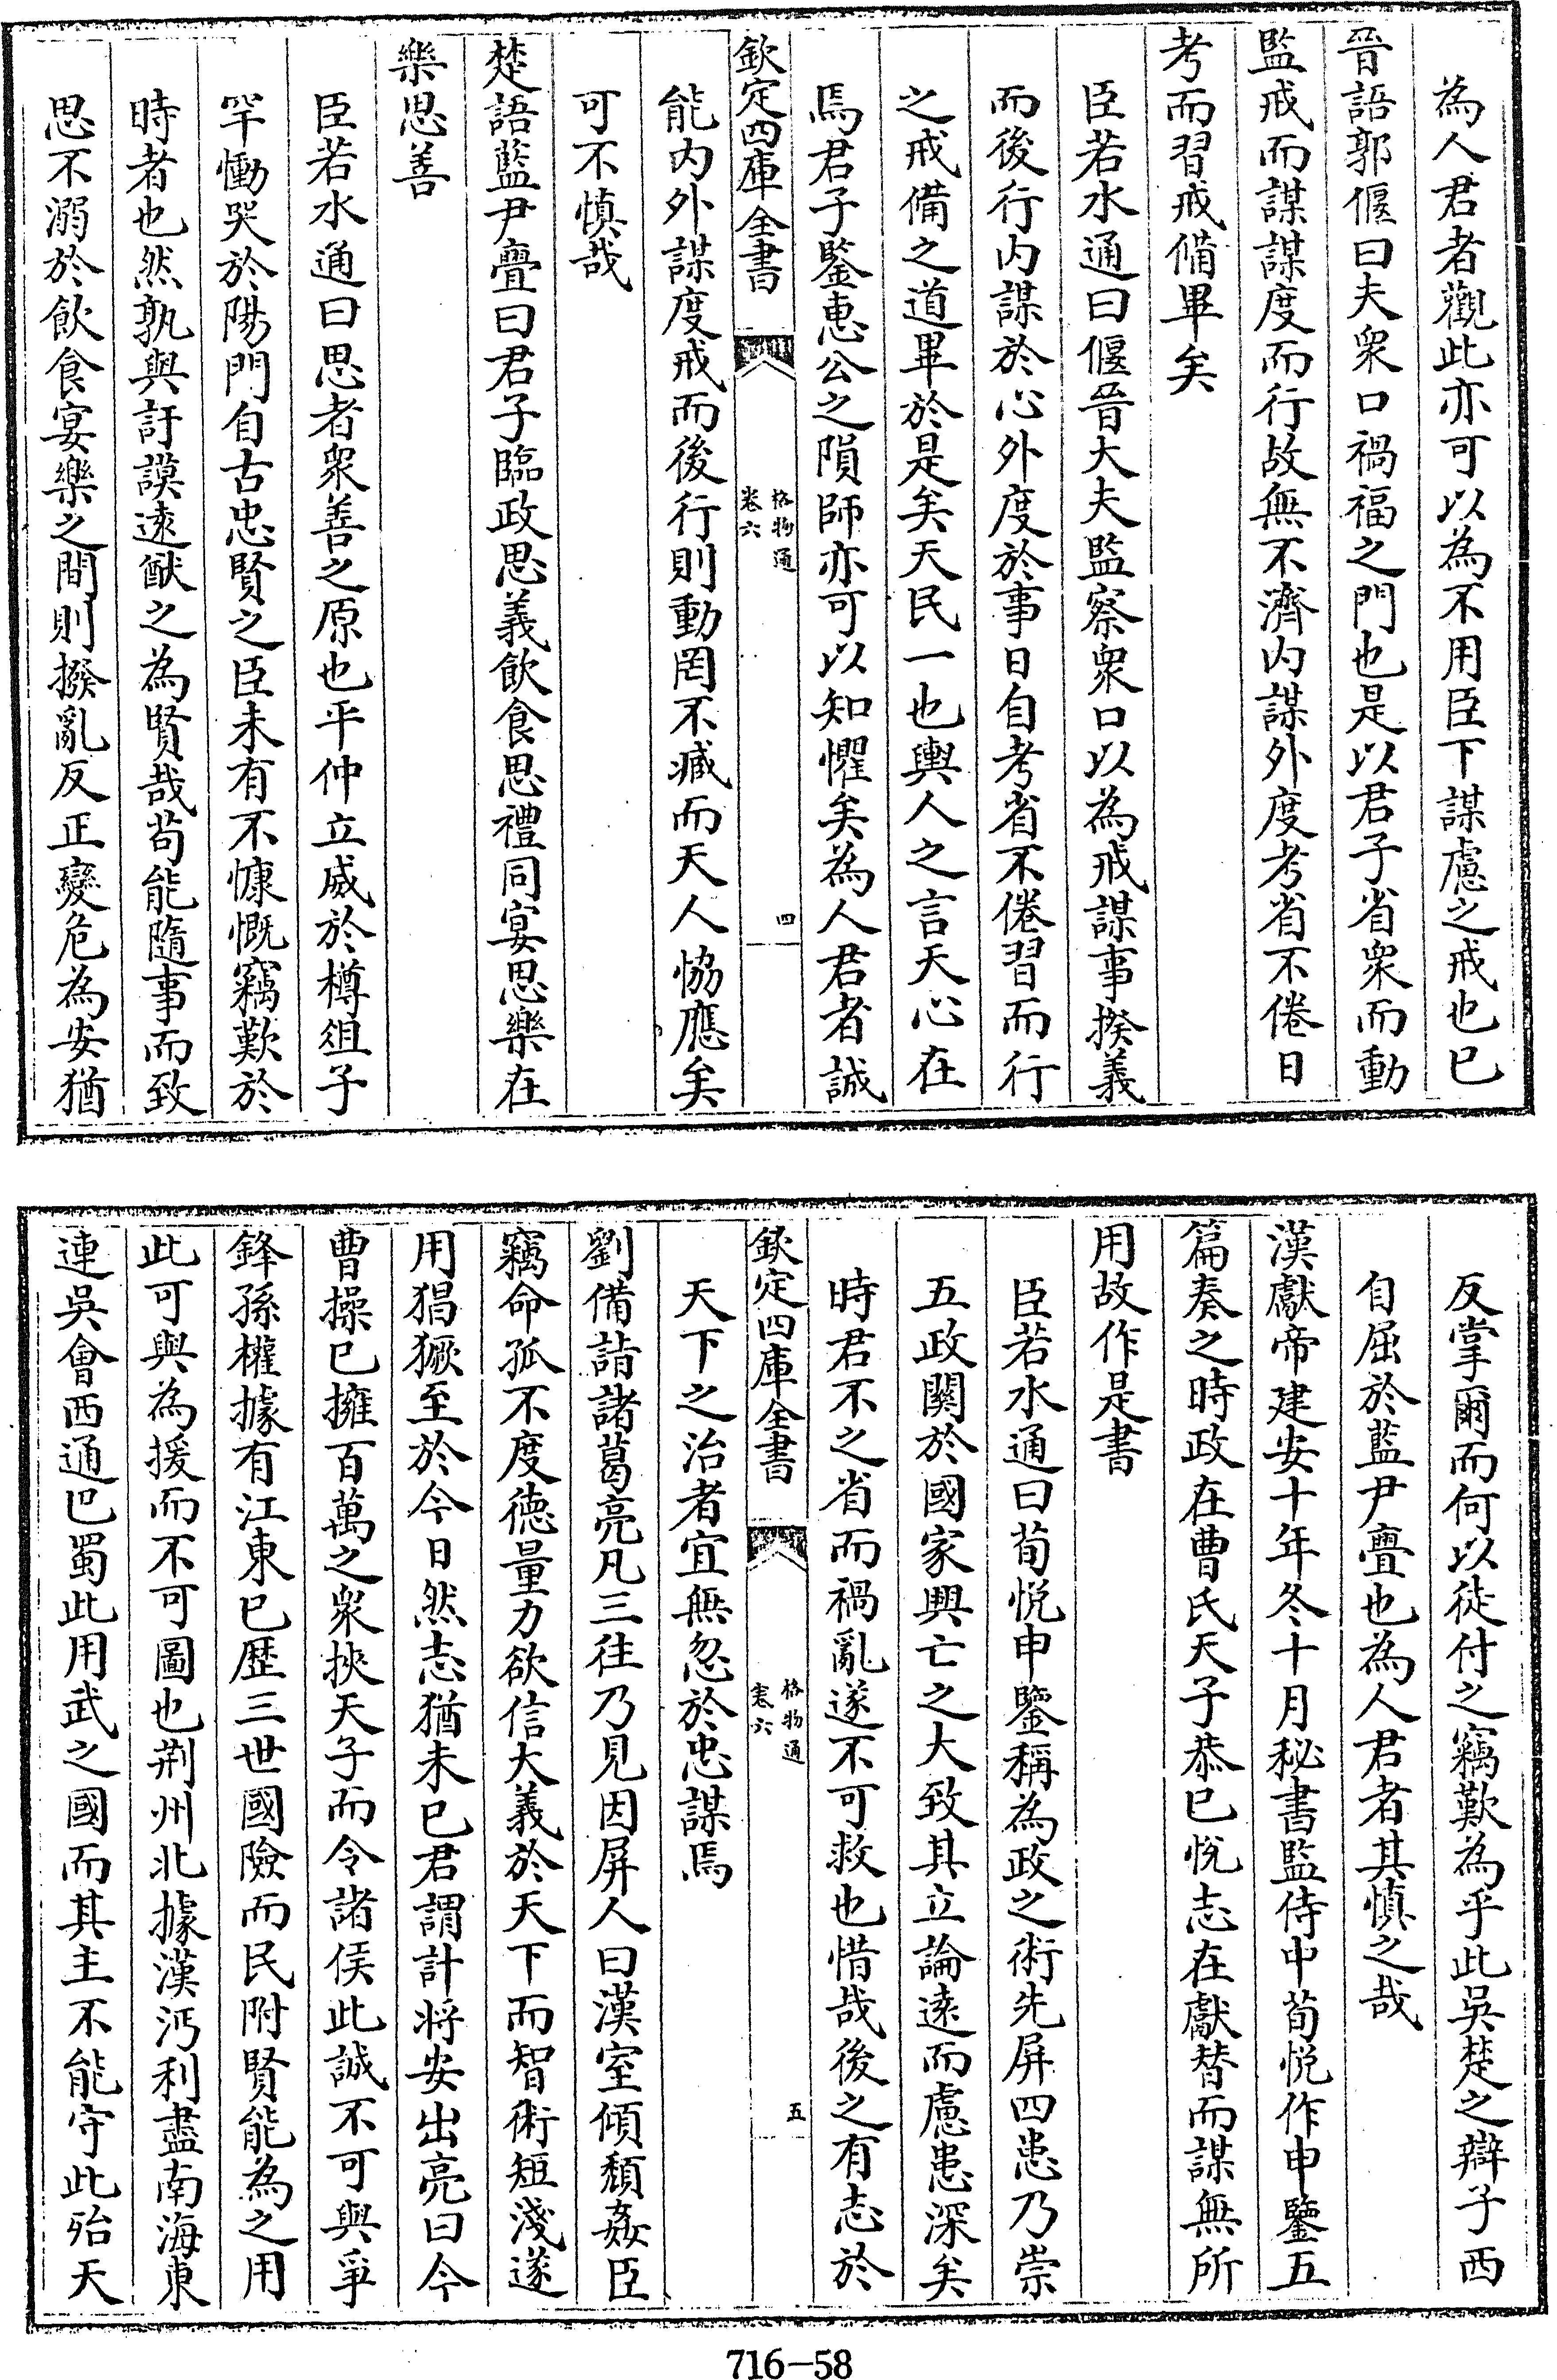 為人君者觀此亦可以為不用臣下謀慮之戒也已
晉語郭偃曰夫衆口禍福之門也是以君子省衆而動
監戒而謀謀度而行故無不濟内謀外度考省不倦日
考而習戒備畢矣
臣若水通曰偃晉大夫監察衆口以為戒謀事揆義
而後行内謀於心外度於事日自考省不倦習而行
之戒備之道畢於是矣天民一也輿人之言天心在
焉君子鑒惠公之隕師亦可以知懼矣為人君者誠
欽定四庫全書
格物通
卷六
四
能内外謀度戒而後行則動罔不臧而天人恊應矣
可不慎哉
楚語藍尹亹曰君子臨政思義飲食思禮同宴思樂在
樂思善
臣若水通曰思者衆善之原也平仲立威於樽俎子
罕慟哭於陽門自古忠賢之臣未有不慷慨竊歎於
時者也然孰與訏謨逺猷之為賢哉茍能隨事而致
思不溺於飲食宴樂之間則撥亂反正變危為安猶
反掌爾而何以徒付之竊歎為乎此吳楚之辯子西
自屈於藍尹亹也為人君者其慎之哉
漢獻帝建安十年冬十月秘書監侍中荀悅作申鑒五
篇奏之時政在曹氏天子恭已悅志在獻替而謀無所
用故作是書
臣若水通曰荀悅申鑒稱為政之術先屏四患乃崇
五政闗於國家興亡之大致其立論逺而慮患深矣
時君不之省而禍亂遂不可救也惜哉後之有志於
欽定四庫全書
格物通
卷六
五
天下之治者宜無忽於忠謀焉
劉備詣諸葛亮凡三往乃見因屏人曰漢室傾頽姦臣
竊命孤不度徳量力欲信大義於天下而智術短淺遂
用猖獗至於今日然志猶未已君謂計將安出亮曰今
曹操已擁百萬之衆挾天子而令諸侯此誠不可與爭
鋒孫權據有江東已歴三世國險而民附賢能為之用
此可與為援而不可圖也荆州北據漢沔利盡南海東
連吳會西通巴蜀此用武之國而其主不能守此殆天
716-58